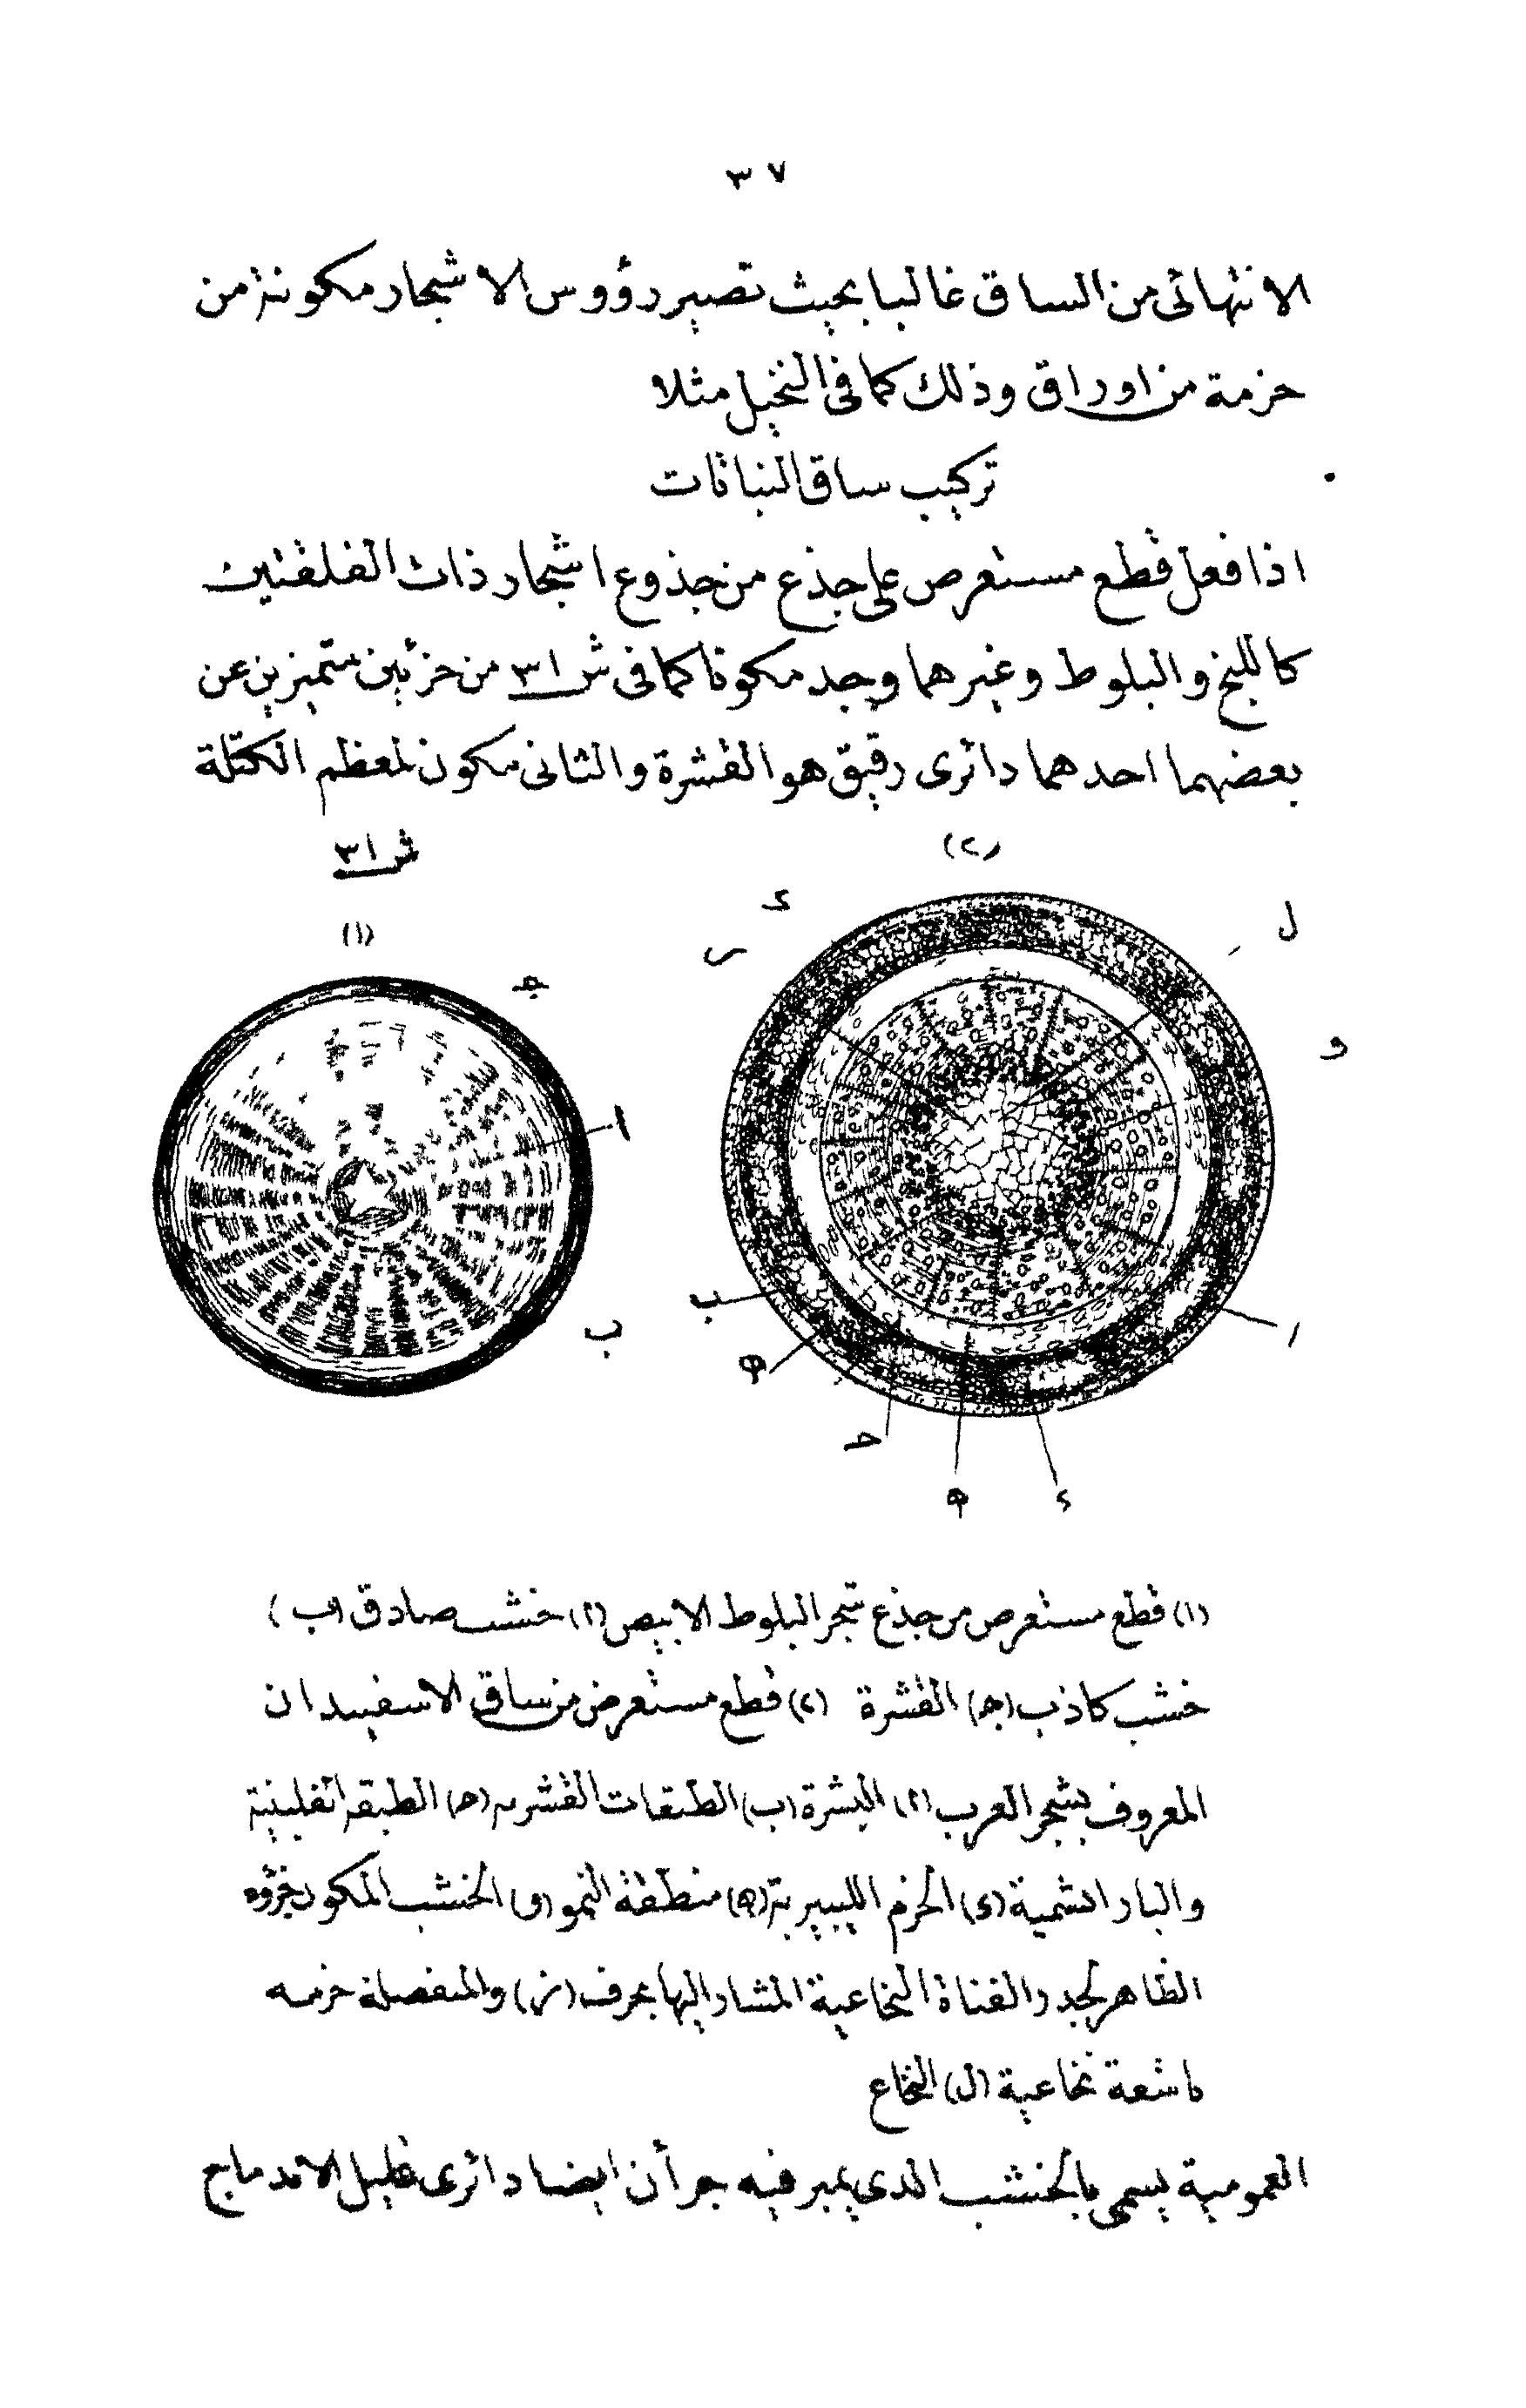 ٣٧
الانتهائى من الساق غالبا بحيث تصير رؤوس الاشجار مكونة من
حزمة من اوراق وذلك كما فى النخيل مثلا
تركيب ساق النباتات
اذا فعل قطع مستعرض على جذع من جذوع اشجار ذات الفلقتين
كاللبخ والبلوط وغيرهما وجد مكونا كما فى ش ٣١ من جزئين متميزين عن
بعضهما احدهما دائرى رقيق هو القشرة والثانى مكون لمعظم الكتلة
ش ٣١
(٢)
(١)
ل
و
ب
ا
ب
ا
(١) قطع مستعرض من جذع شجر البلوط الابيض (ا) خشب صادق (ب)
خشب كاذب (ج) القشرة (٢) قطع مستعرض من ساق الاسفيندان
المعروف بشجر العرب (ا) البشرة (ب) الطبقات القشرية (ح) الطبقة الفلينية
والبارانشمية (ء) الحزم الليبيرية (ه) منطقة النمو (و) الخشب المكون جزؤه
الظاهر لحد القناة النخاعية المشار اليها بحرف (ز) والمنفصلة حزمه
باشعة نخاعية (ل) النخاع
العمومية يسمى بالخشب الذى يميز فيه جزأن ايضا دائرى قليل الاندماج